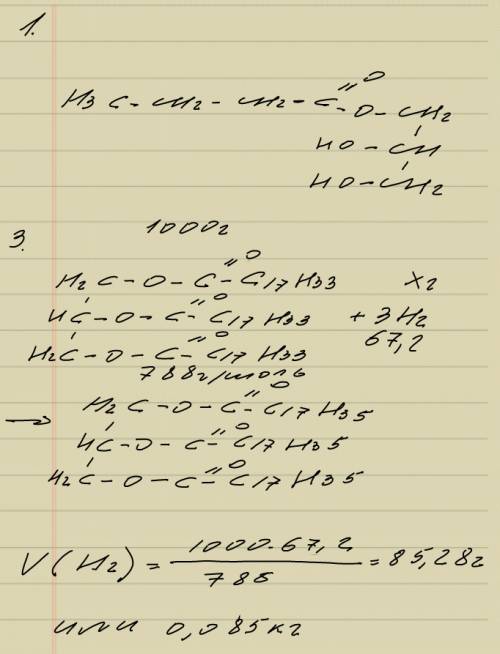 1.
O
H3C - CH2 - CH2 - C - O - CH2
HO - CH
HO - CH2
3.
1000г
H2C - O - C - C17H33 Xг
O
HC - O - C - C17H33 + 3H2
O
H2C - O - C - C17H33 67,2
O
788г/моль
→ H2C - O - C - C17H35
O
HC - O - C - C17H35
O
H2C - O - C - C17H35
O
V(H2) = 1000·67,2 / 788 = 85,28г
или 0,085кг